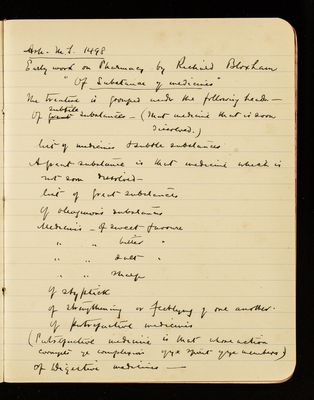 Ash. M.S. 1498
Early work on Pharmacy by Richard Bloxham
"Of Substance of medicines"
The treatise is grouped under the following heads—
subtile
Of great substances — (That medicine that is soon
dissolved.)
list of medicines & subtile substances
A great substance is that medicine which is
not soon dissolved—
list of great substances
Of oleaginous substances
Medicines — Of sweet savoure
" " bitter "
" " salt "
" " sharpe
Of styptick
Of strengthening or feeblyng of one another.
Of putrefactive medicines
(Putrefactive medicine is that whose action
corrupts ye complexion of ye spirit of ye members)
Of Digestive medicines —